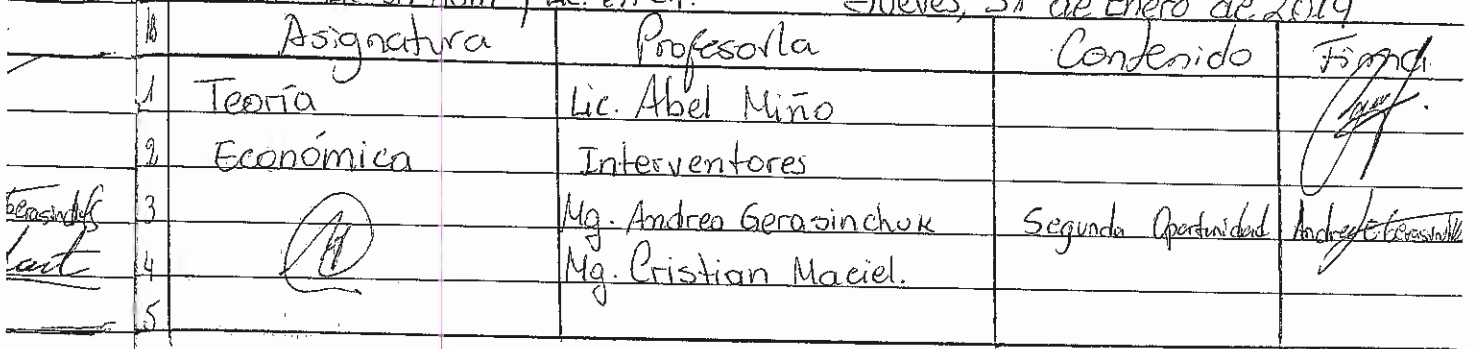 Jueves, 31 de Enero de 2019
Nº Asignatura Profesor/a Contenido Firma
1 Teoría Lic. Abel Miño
2 Económica Interventores
3 Mg. Andrea Gerasinchuk Segunda Oportunidad Andrea E. Gerasinchuk
4 Mg. Cristian Maciel.
5